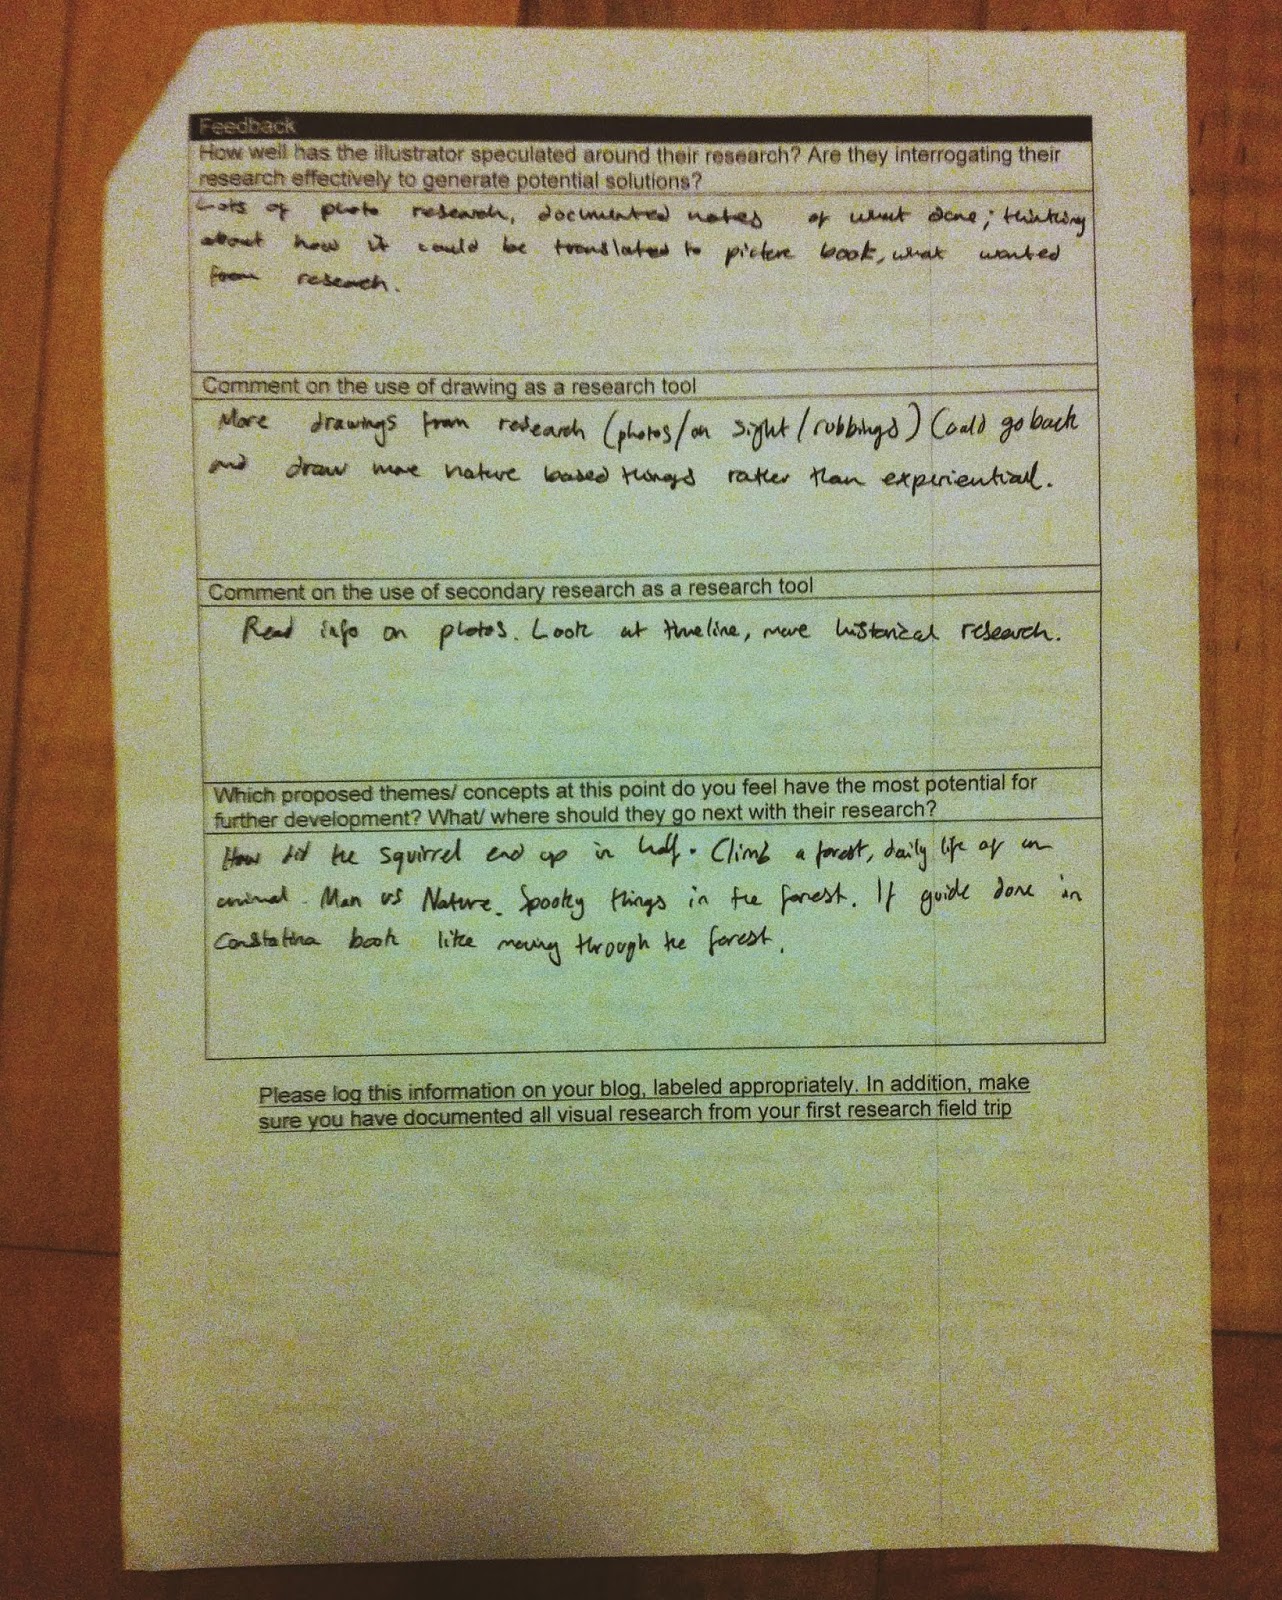 Feedback
How well has the illustrator speculated around their research? Are they interrogating their
research effectively to generate potential solutions?
Lots of photo research, documented notes of what done; thinking
about how it could be translated to picture book, what wanted
from research.
Comment on the use of drawing as a research tool
More drawings from research (photos/on sight/rubbings) Could go back
and draw more nature based things rather than experiential.
Comment on the use of secondary research as a research tool
Read info on photos. Look at timeline, more historical research.
Which proposed themes/ concepts at this point do you feel have the most potential for
further development? What/ where should they go next with their research?
How did the squirrel end up in half. Climb a forest, daily life of an
animal. Man vs Nature. Spooky things in the forest. If guide done in
book like moving through the forest.
Please log this information on your blog, labeled appropriately. In addition, make
sure you have documented all visual research from your first research field trip